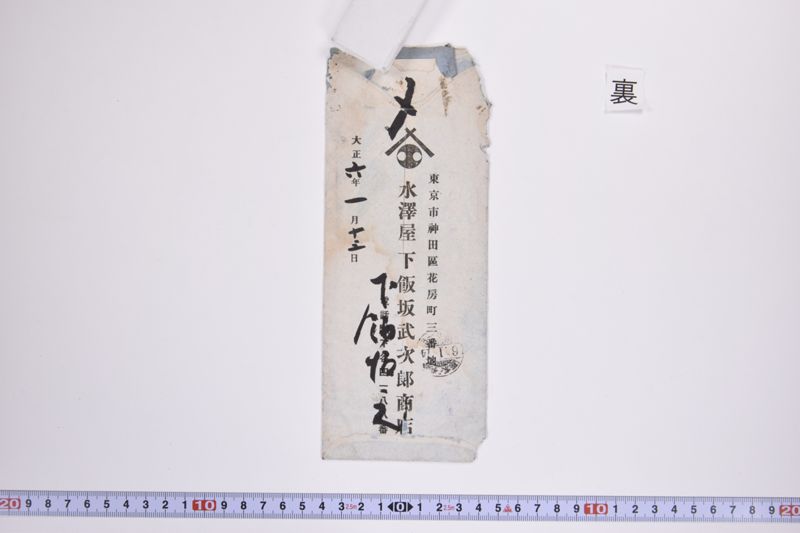 裏
〆
東京市神田區花房町三番地
水澤屋 下飯坂武次郎商店
大正六年一月十三日
下飯坂
20 9 8 7 6 5 4 3 2 1 10 9 8 7 6 5 4 3 2 1 0 1 2 3 4 5 6 7 8 9 10 1 2 3 4 5 6 7 8 9 20